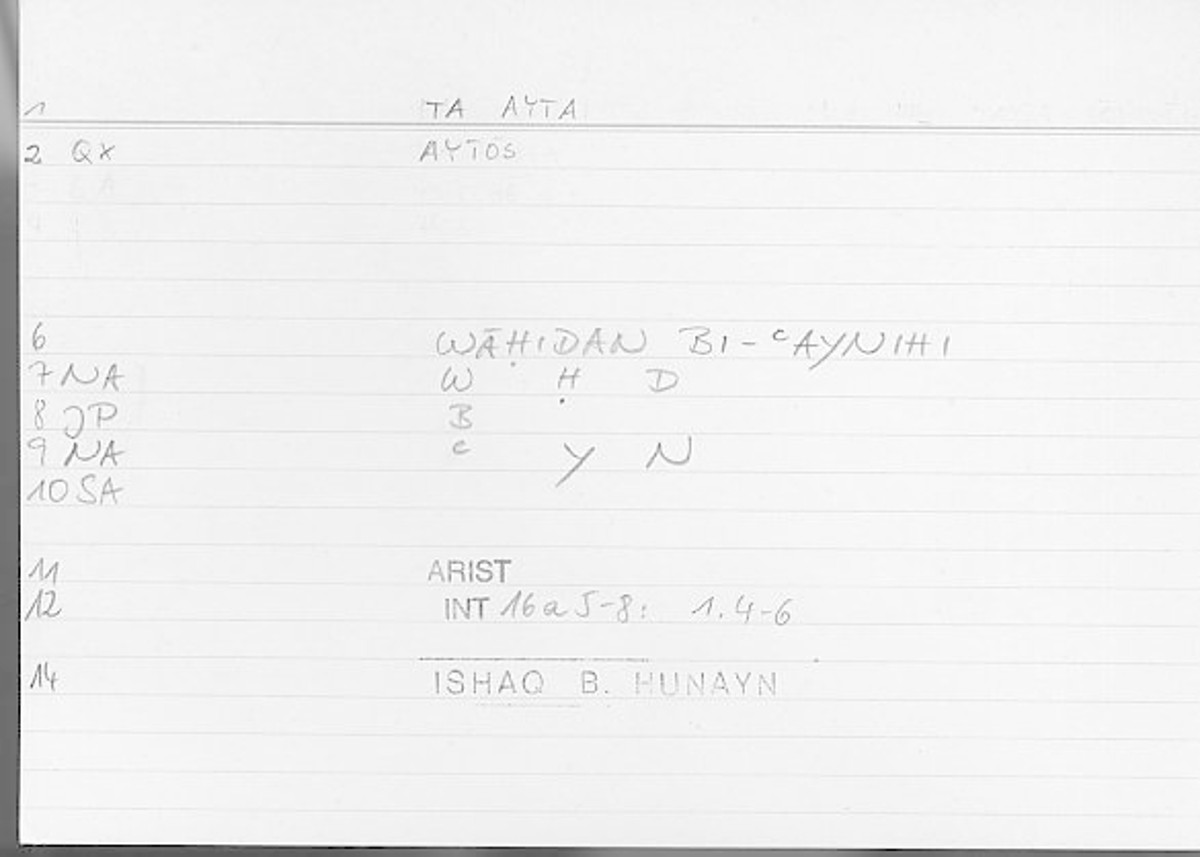 1 TA AYTA
2 QX AYTOS
6 WĀḤIDAN BI-ᶜAYNIHI
7 NA W Ḥ D
8 JP B
9 NA ᶜ Y N
10 SA
11 ARIST
12 INT 16a5-8: 1.4-6
14 ISHAQ B. HUNAYN